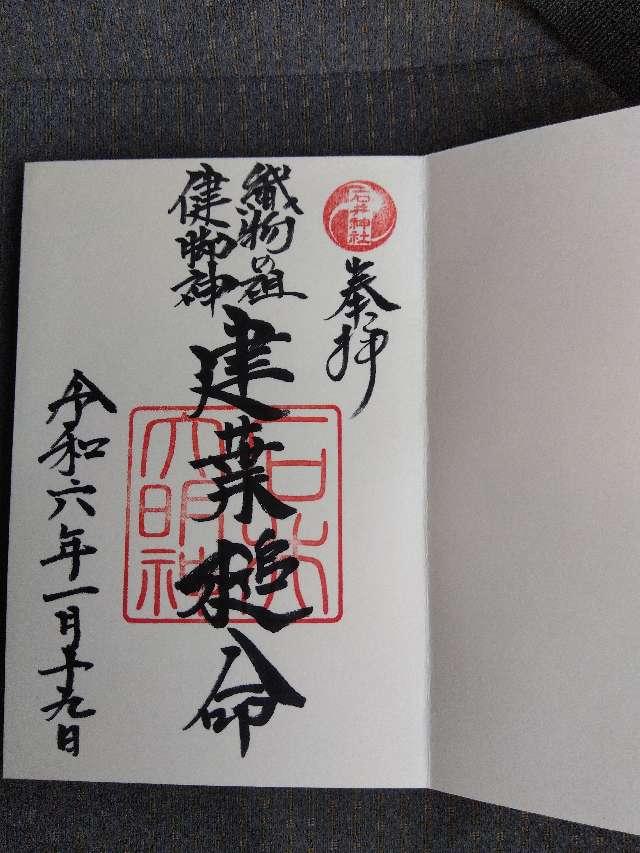 石井神社
奉拝
織物の祖
健御神
建葉槌命
大明神
令和六年一月十九日